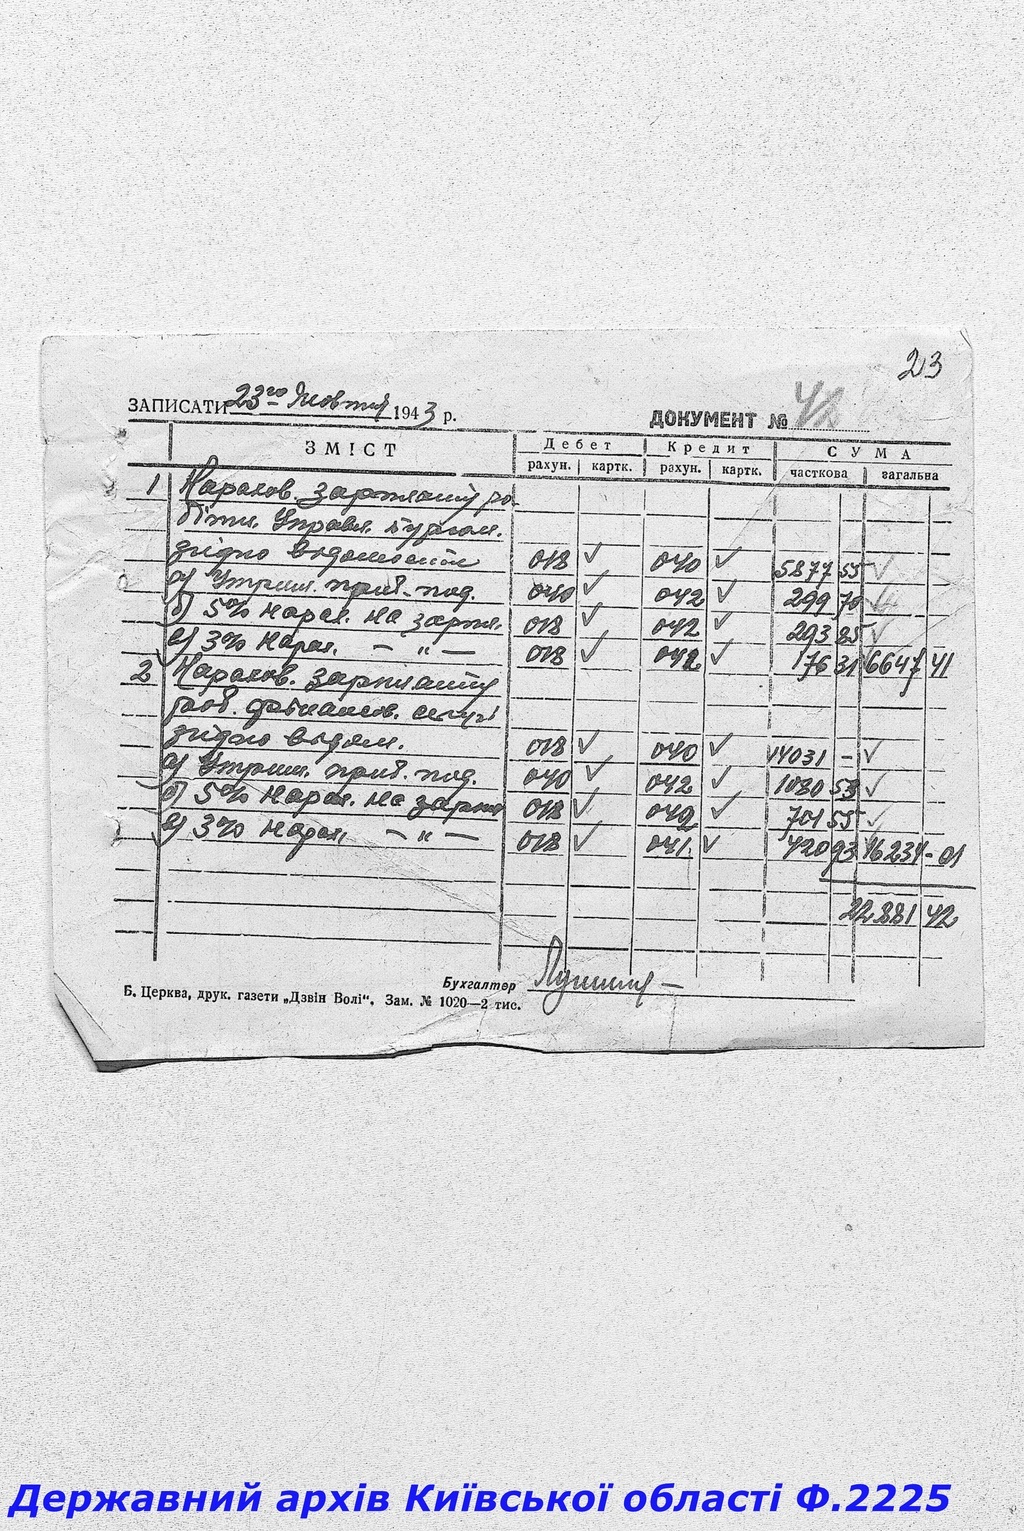 23
ЗАПИСАТИ 23го Жовтня 1943 р. ДОКУМЕНТ № 42
ЗМІСТ Дебет Кредит СУМА
рахун. картк. рахун. картк. часткова загальна
1 Нарахов. зарплати ро-
бітн. Управл. бургом.
згідно відомости 018 ✓ 040 ✓ 5877 55 ✓
а) Утрим. приб. под. 040 ✓ 042 ✓ 299 70 ✓
б) 5% нарах. на зарпл. 018 ✓ 042 ✓ 293 85 ✓
в) 3% нарах. — „ — 018 ✓ 042 ✓ 176 31 6647 41
2 Нарахов. зарплати
роб. фінансов.
згідно відом. 018 ✓ 040 ✓ 14031 - ✓
а) Утрим. приб. под. 040 ✓ 042 ✓ 1080 53 ✓
б) 5% нарах. на зарпл 018 ✓ 042 ✓ 701 55 ✓
в) 3% нарах. — „ — 018 ✓ 041 ✓ 420 93 16234 - 01
22881 42
Бухгалтер
Б. Церква, друк. газети „Дзвін Волі“. Зам. № 1020—2 тис.
Державний архів Київської області Ф.2225